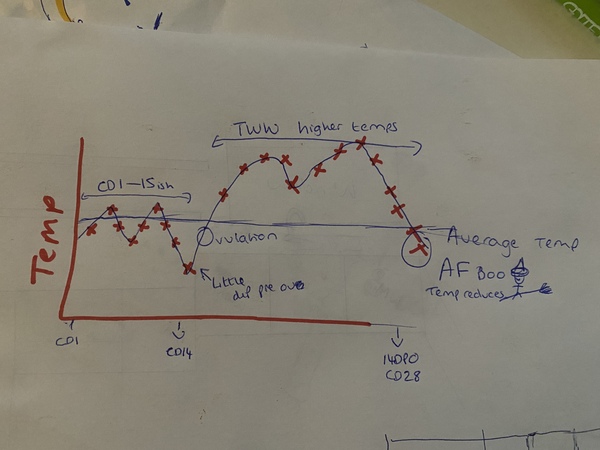 TWW higher temps
CD1-15ish
Temp
Ovulation
Average Temp
Little
dip pre ov
AF Boo
Temp reduces
CD1
CD14
14DPO
CD28